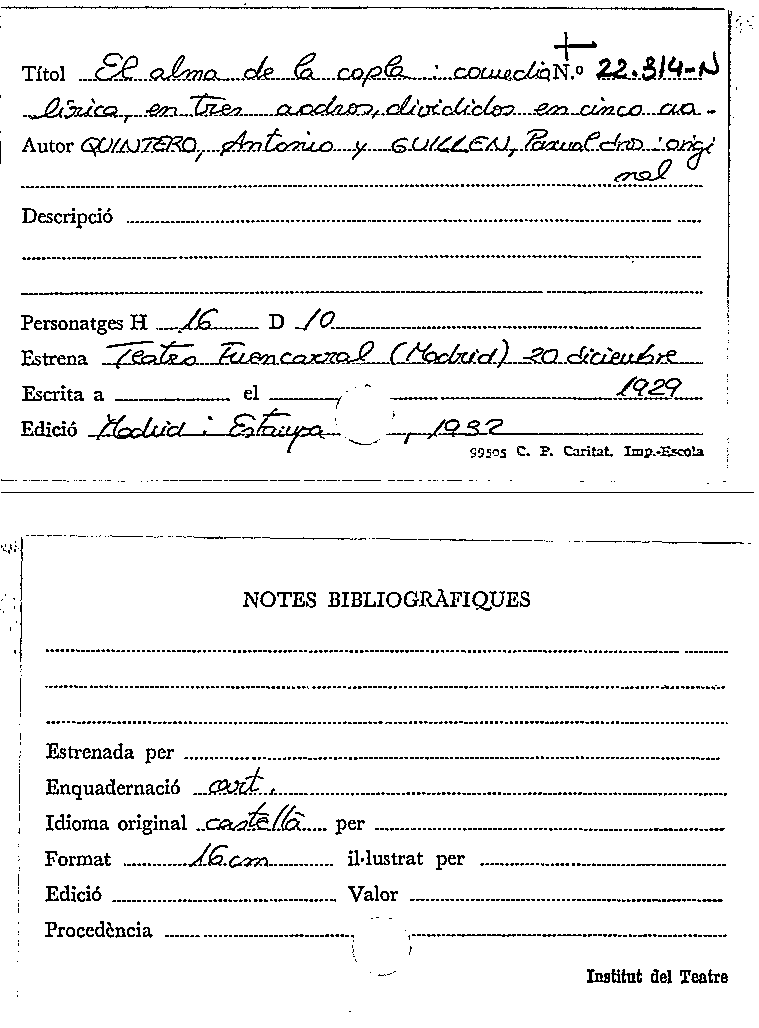 Títol El alma de la copla : comedia N.º 22.314-N
lírica, en tres actos, divididos en cinco cua-
Autor QUINTERO, Antonio y GUILLEN, Pascual dros : origi
nal
Descripció
Personatges H 16 D 10
Estrena Teatro Fuencarral (Madrid) 20 diciembre
Escrita a el 1929
Edició Madrid : Estampa , 1932
99505 C. P. Caritat. Imp.-Escola
NOTES BIBLIOGRÀFIQUES
Estrenada per
Enquadernació cart.
Idioma original castellà per
Format 16 cm il·lustrat per
Edició Valor
Procedència
Institut del Teatre